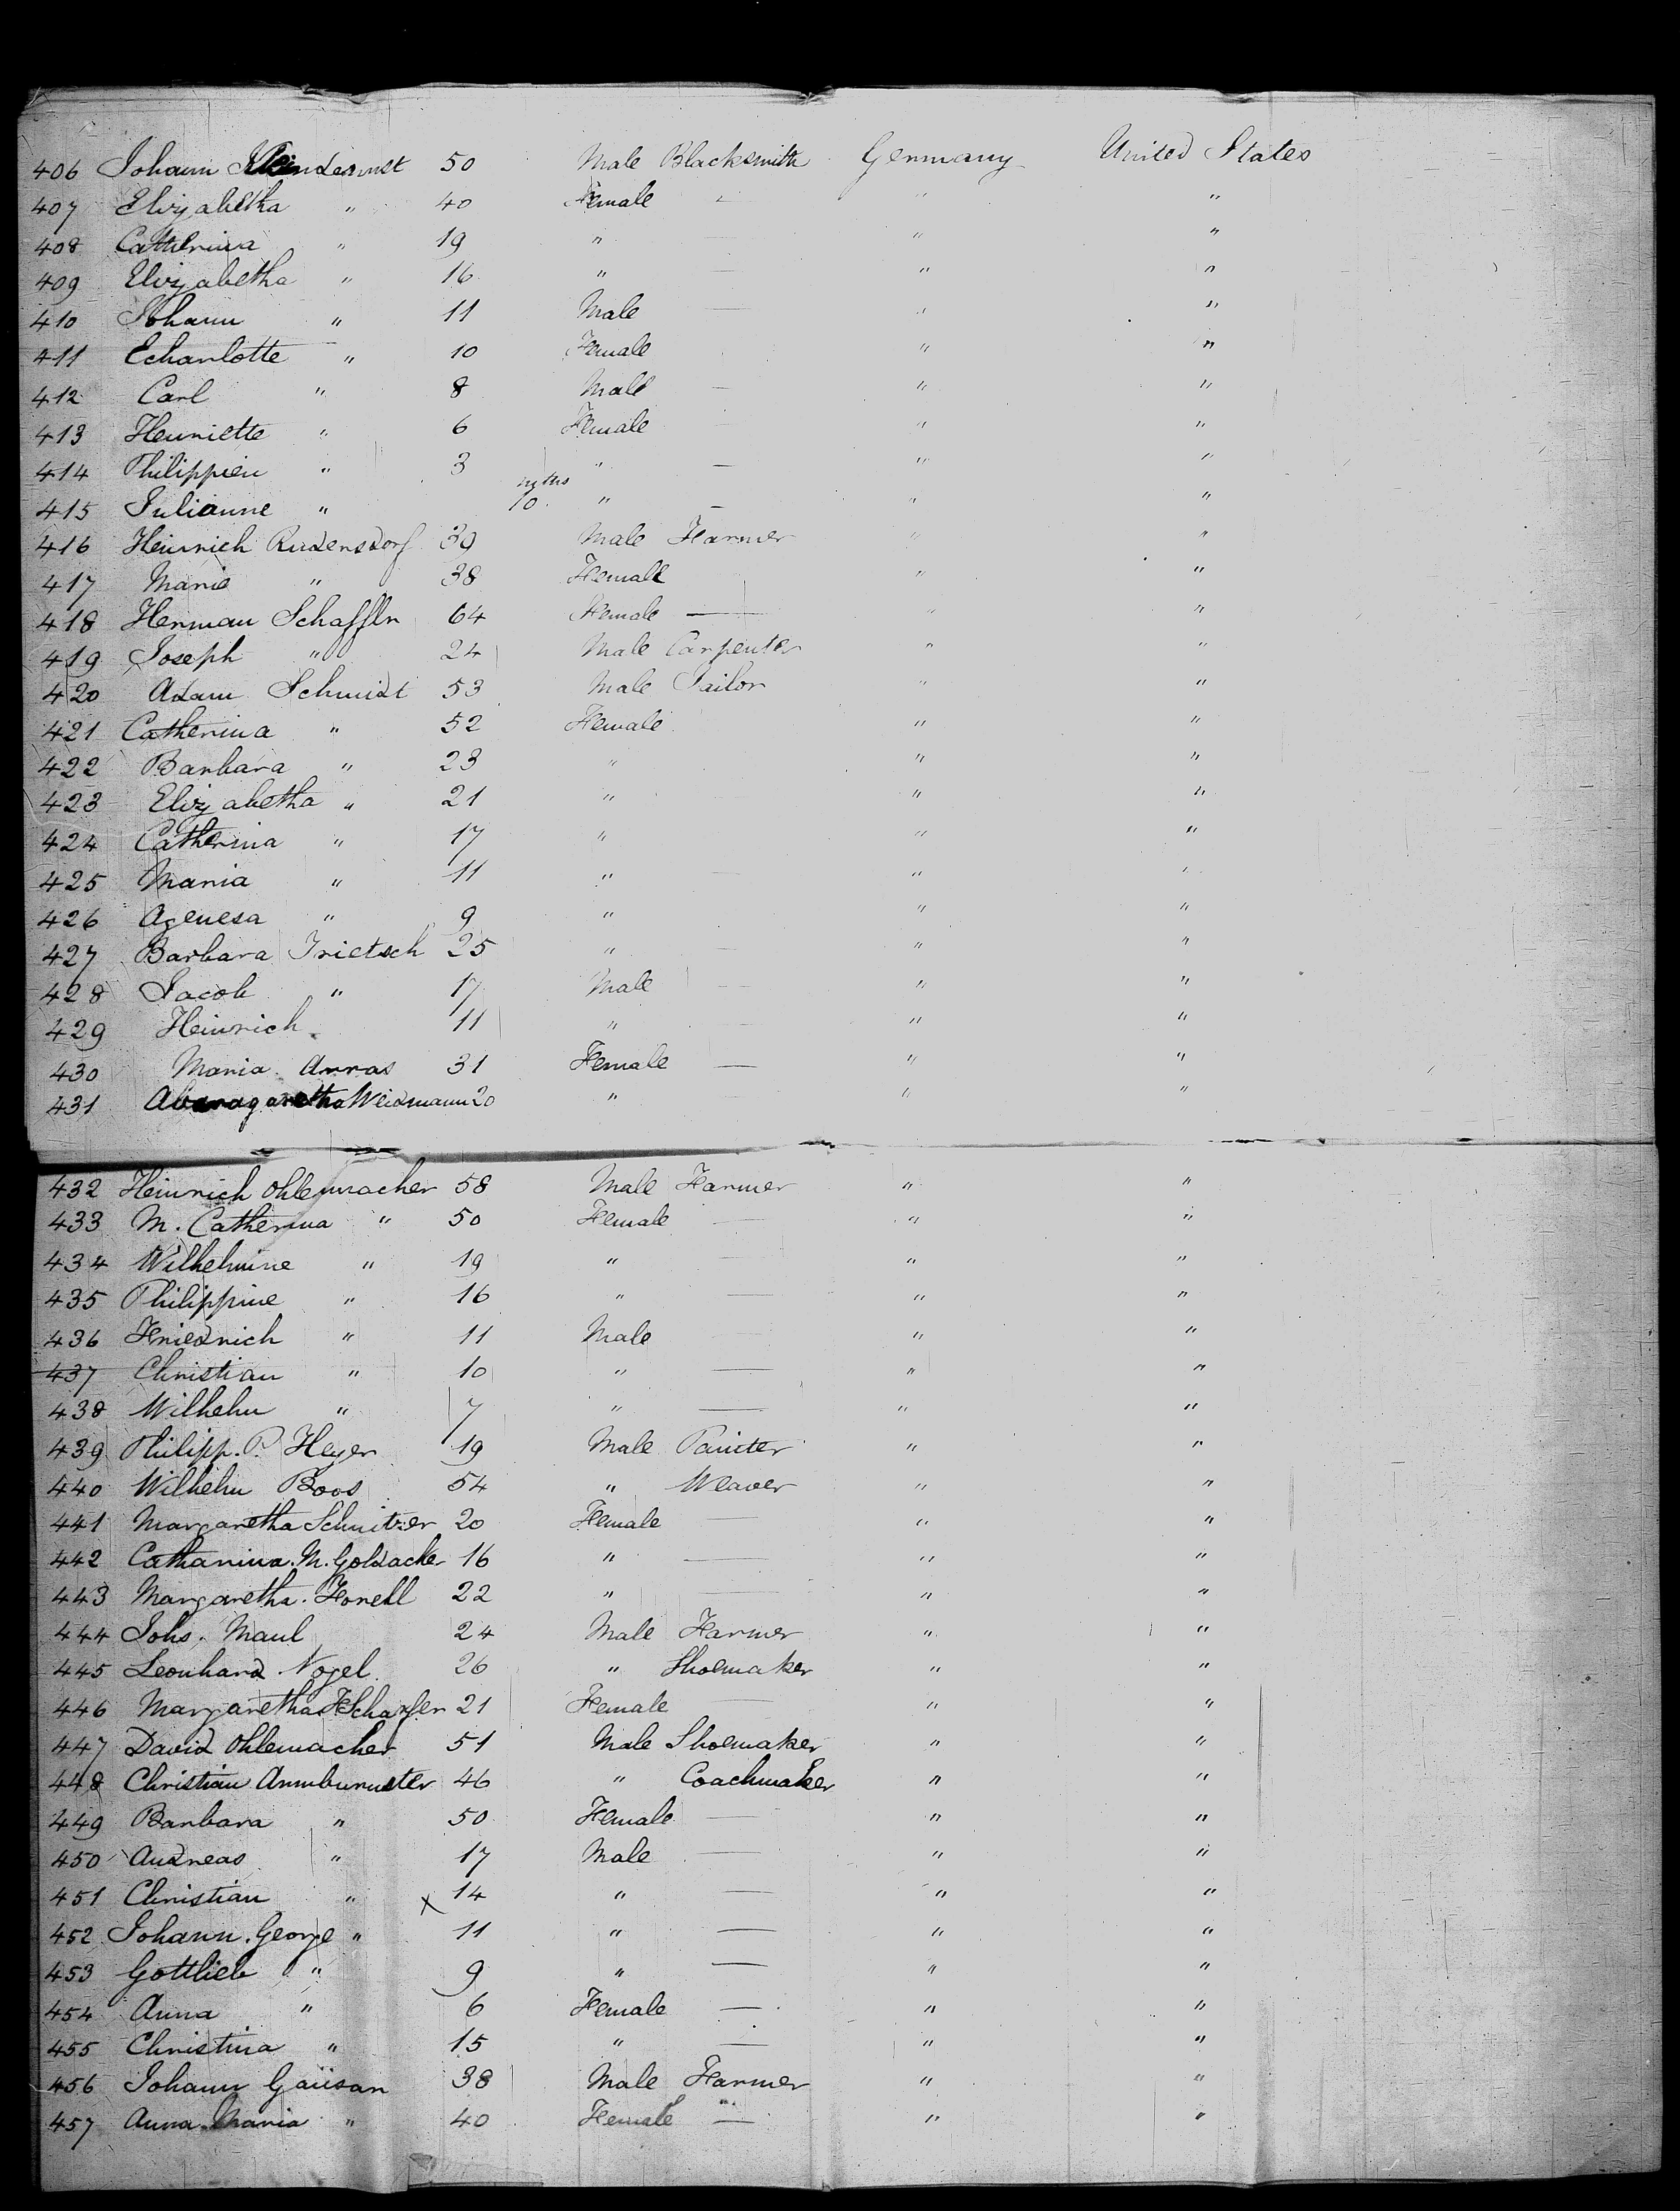 406 Johann 50 Male Blacksmith Germany United States
407 Elizabetha " 40 Female " " "
408 Catherina " 19 " — " "
409 Elizabetha " 16 " — " "
410 Johann " 11 Male — " "
411 Echarlotte " 10 Female " "
412 Carl " 8 Male — " "
413 Henriette " 6 Female " "
414 Philippien " 3 " — " "
415 Julianne " mths 10 " — " "
416 Heinrich Rudensdorf 39 Male Farmer " "
417 Marie " 38 Female " "
418 Herman Schaffler 64 Female — " "
419 Joseph " 24 Male Carpenter " "
420 Adam Schmidt 53 Male Tailor " "
421 Catherina " 52 Female " "
422 Barbara " 23 " " "
423 Elizabetha " 21 " " "
424 Catherina " 17 " " "
425 Maria " 11 " — " "
426 Agenesa " 9 " " "
427 Barbara Trietsch 25 " — " "
428 Jacob " 17 Male — " "
429 Heinrich " 11 " — " "
430 Maria Arras 31 Female — " "
431 Weidmann 20 " " "
432 Heinrich Ohlemacher 58 Male Farmer " "
433 M. Catherina " 50 Female — " "
434 Wilhelmine " 19 " — " "
435 Philippine " 16 " — " "
436 Friedrich " 11 Male — " "
437 Christian " 10 " — " "
438 Wilhelm " 7 " — " "
439 Philipp. P. Heyer 19 Male Painter " "
440 Wilhelm Boos 54 " Weaver " "
441 Margaretha Schnitzer 20 Female — " "
442 Catharina. M. Goldacker 16 " — " "
443 Margaretha. Fornell 22 " — " "
444 Johs. Maul 24 Male Farmer " "
445 Leonhard Nogel 26 " Shoemaker " "
446 Margaretha 21 Female — " "
447 David Ohlemacher 51 Male Shoemaker " "
448 Christian Armburuster 46 " Coachmaker " "
449 Barbara " 50 Female — " "
450 Andreas " 17 Male — " "
451 Christian " x 14 " — " "
452 Johann. George " 11 " — " "
453 Gottlieb " 9 " — " "
454 Anna " 6 Female — " "
455 Christina " 15 " — " "
456 Johann Gaüsan 38 Male Farmer " "
457 Anna Maria " 40 Female — " "